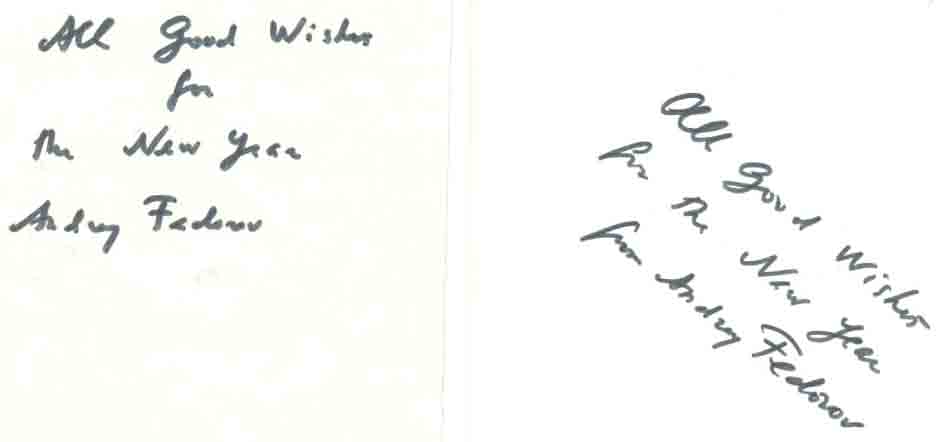 All Good Wishes
for
the New Year
Andrey Fedorov
All Good Wishes
for the New Year
from Andrey Fedorov